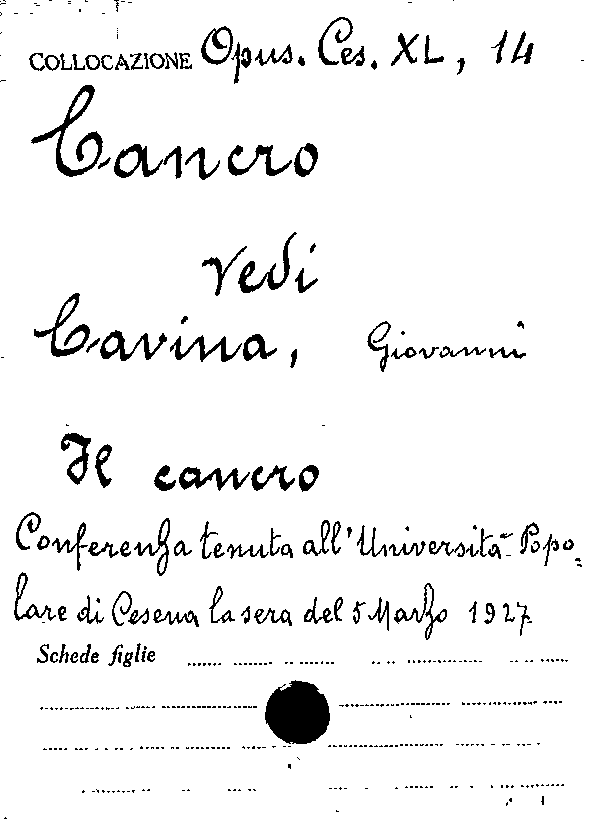 COLLOCAZIONE Opus. Ces. XL, 14
Cancro
vedi
Cavina, Giovanni
Il cancro
Conferenza tenuta all'Università Popo=
lare di Cesena la sera del 5 Marzo 1927
Schede figlie